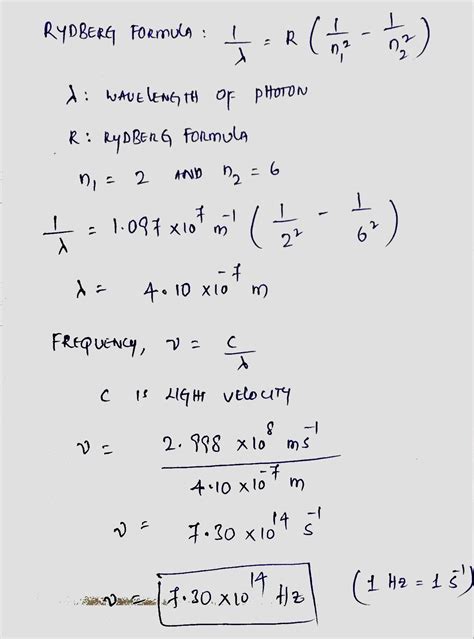 RYDBERG FORMULA : 1/λ = R (1/n₁² - 1/n₂²)
λ : WAVELENGTH OF PHOTON
R : RYDBERG FORMULA
n₁ = 2 AND n₂ = 6
1/λ = 1.097 x10⁷ m⁻¹ (1/2² - 1/6²)
λ = 4.10 x10⁻⁷ m
FREQUENCY, ν = C/λ
C IS LIGHT VELOCITY
ν = 2.998 x10⁸ ms⁻¹ / 4.10 x10⁻⁷ m
ν = 7.30 x10¹⁴ s⁻¹
ν = 7.30 x10¹⁴ Hz (1 Hz = 1 s⁻¹)